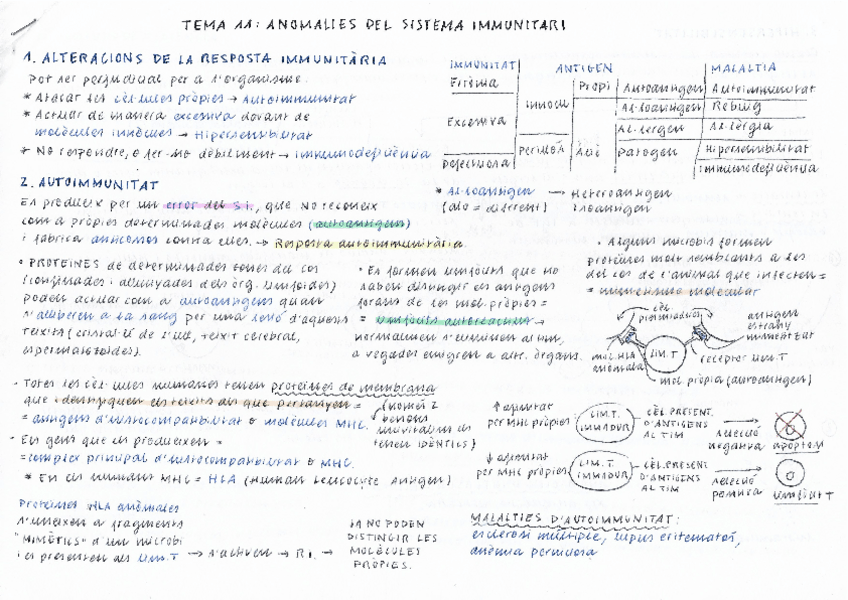 TEMA 11: ANOMALIES DEL SISTEMA IMMUNITARI
1. ALTERACIONS DE LA RESPOSTA IMMUNITÀRIA
Pot ser perjudicial per a l'organisme.
* Atacar les cèl·lules pròpies → Autoimmunitat
* Actuar de manera excessiva davant de
molècules innòcues → Hipersensibilitat
* No respondre, o fer-ho dèbilment → immunodeficiència
IMMUNITAT ANTIGEN MALALTIA
Errònia Innocu Propi Autoantigen Autoimmunitat
Excessiva Al·loantigen Rebuig
Al·lergen Al·lèrgia
Defectuosa Perillós Aliè Patogen Hipersensibilitat
Immunodeficiència
* Al·loantigen → Heteroantigen
(alo = diferent) Isoantigen
2. AUTOIMMUNITAT
Es produeix per un error del S.I., que NO reconeix
com a pròpies determinades molècules (autoantigen)
i fabrica anticossos contra elles. → Resposta autoimmunitària.
• PROTEÏNES de determinades zones del cos
(confinades i allunyades dels òrg. limfoides)
poden actuar com a autoantigens quan
s'alliberen a la sang per una lesió d'aquests
teixits (cristal·lí de l'ull, teixit cerebral,
espermatozoides).
• Es formen limfòcits que no
saben distingir els antígens
forans de les mol. pròpies =
= limfòcits autoreactius →
normalment s'eliminen al tim,
a vegades emigren a altr. òrgans.
• Alguns microbis formen
proteïnes molt semblants a les
del cos de l'animal que infecten =
= mimetisme molecular
cèl.
presentadora
antigen
estrany
mol. HLA
anòmala
LIM. T
receptor lim. T
mol. pròpia (autoantigen)
• Totes les cèl·lules humanes tenen proteïnes de membrana
que identifiquen els teixits als que pertanyen =
= antígens d'histocompatibilitat o molècules MHC.
(només 2
bessons
univitel·lins les
tenen IDÈNTICS)
• Els gens que les produeixen =
= complex principal d'histocompatibilitat o MHC.
* En els humans MHC = HLA (Human Leucocyte Antigen)
↑ afinitat
per MHC pròpies
LIM. T.
IMMADUR
CÈL. PRESENT.
D'ANTÍGENS
AL TIM
selecció
negativa
apoptosi
↓ afinitat
per MHC pròpies
LIM. T.
IMMADUR
CÈL. PRESENT
D'ANTÍGENS
AL TIM
selecció
positiva
limfòcit T
Proteïnes HLA anòmales
s'uneixen a fragments
"MIMÈTICS" d'un microbi
i es presenten als Lim. T → s'activen → R.I. →
JA NO PODEN
DISTINGIR LES
MOLÈCULES
PRÒPIES.
MALALTIES D'AUTOIMMUNITAT:
esclerosi múltiple, lupus eritematós,
anèmia perniciosa